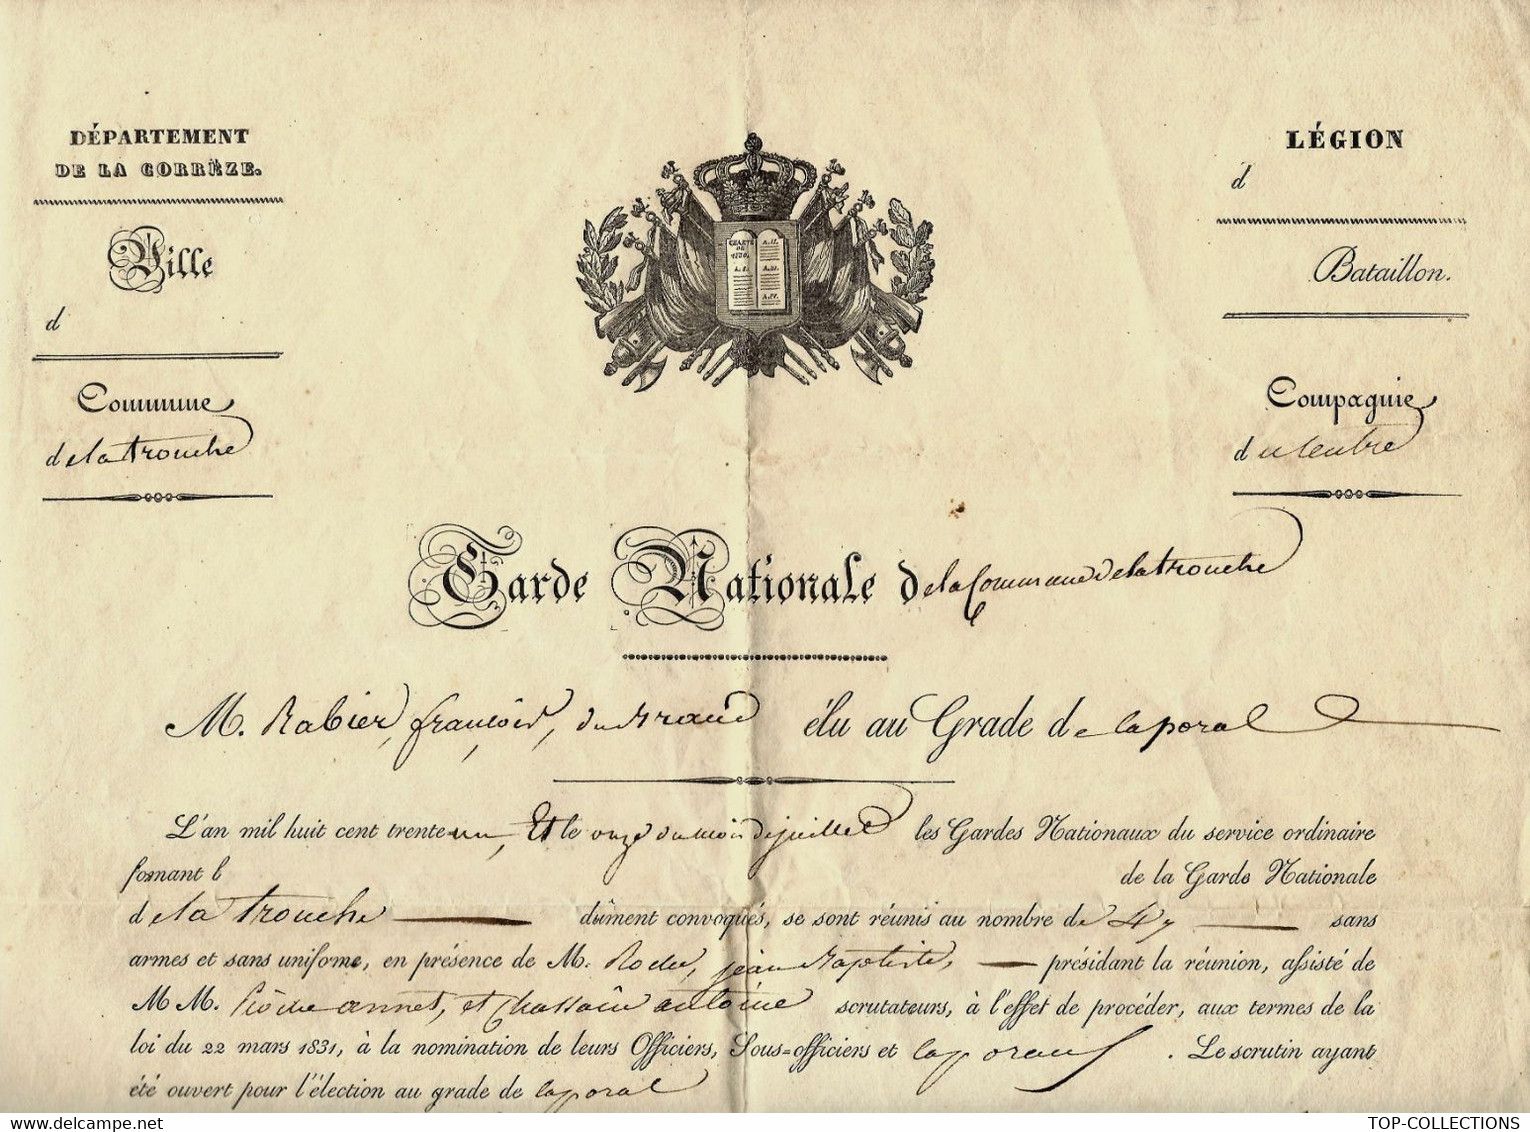 DÉPARTEMENT
DE LA CORRÈZE.
Ville
d
Commune
de la trouche
CHARTE
DE
1830.
LÉGION
d
Bataillon.
Compagnie
du Centre
Garde Nationale de la Commune de la trouche
M. Rabier, françois, élu au Grade de Caporal
L'an mil huit cent trente un, Et le onze du mois de juillet les Gardes Nationaux du service ordinaire
formant l de la Garde Nationale
de la trouche dûment convoqués, se sont réunis au nombre de 47 sans
armes et sans uniforme, en présence de M. Roche, jean Baptiste, présidant la réunion, assisté de
M M. annet, et Chassain antoine scrutateurs, à l'effet de procéder, aux termes de la
loi du 22 mars 1831, à la nomination de leurs Officiers, Sous-officiers et Caporaux. Le scrutin ayant
été ouvert pour l'élection au grade de Caporal
TOP-COLLECTIONS